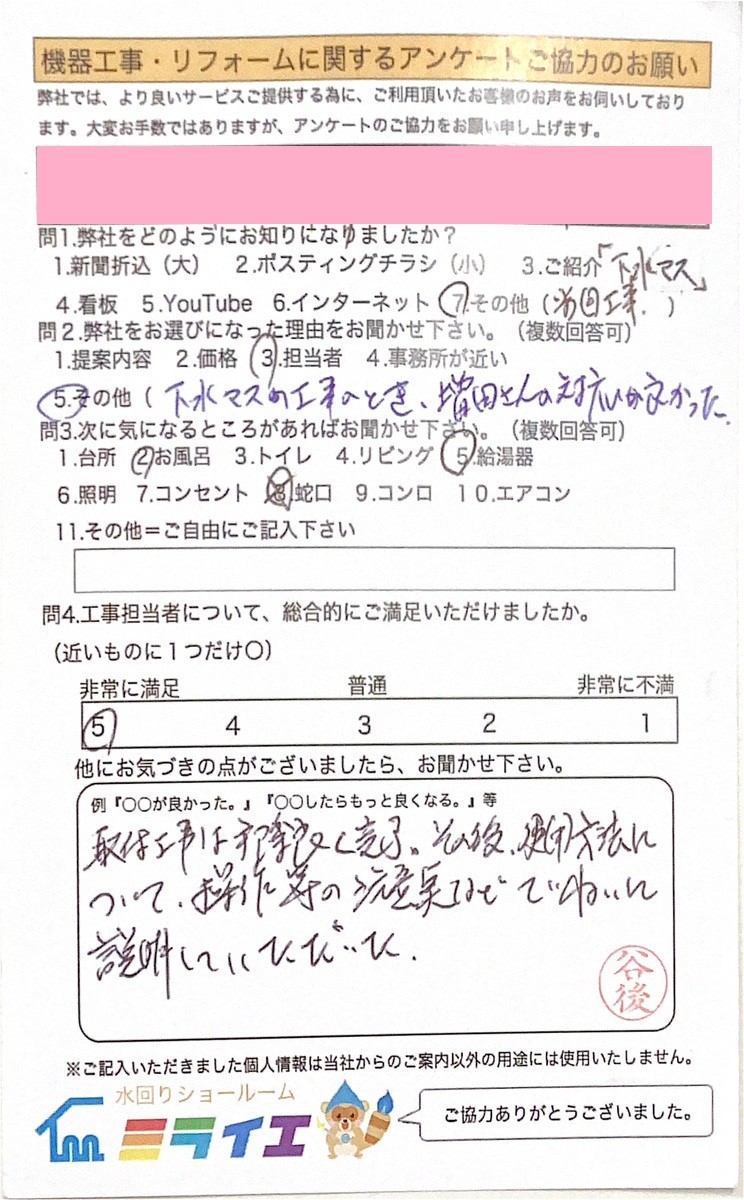 機器工事・リフォームに関するアンケートご協力のお願い
弊社では、より良いサービスご提供する為に、ご利用頂いたお客様のお声をお伺いしており
ます。大変お手数ではありますが、アンケートのご協力をお願い申し上げます。
問1.弊社をどのようにお知りになりましたか？
1.新聞折込（大） 2.ポスティングチラシ（小） 3.ご紹介「下水マス」
4.看板 5.YouTube 6.インターネット 7.その他（前回工事. ）
問2.弊社をお選びになった理由をお聞かせ下さい。（複数回答可）
1.提案内容 2.価格 3.担当者 4.事務所が近い
5.その他（ 下水マスの工事のとき、増田さんの対応が良かった.
問3.次に気になるところがあればお聞かせ下さい。（複数回答可）
1.台所 2.お風呂 3.トイレ 4.リビング 5.給湯器
6.照明 7.コンセント 8.蛇口 9.コンロ 10.エアコン
11.その他＝ご自由にご記入下さい
問4.工事担当者について、総合的にご満足いただけましたか。
（近いものに1つだけ〇）
非常に満足 普通 非常に不満
5 4 3 2 1
他にお気づきの点がございましたら、お聞かせ下さい。
例『〇〇が良かった。』『〇〇したらもっと良くなる。』等
取付工事は手際良く完了。その後、使用方法に
ついて、操作等の注意点などていねいに
説明していただいた.
谷後
※ご記入いただきました個人情報は当社からのご案内以外の用途には使用いたしません。
水回りショールーム
ミライエ
ご協力ありがとうございました。